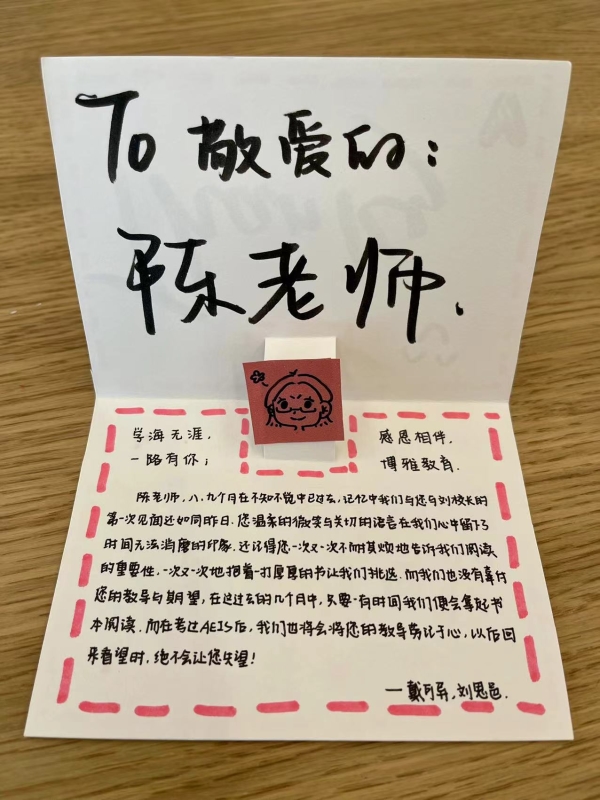 To 敬爱的:
陈老师.
学海无涯,
一路有你;
感恩相伴,
博雅教育.
陈老师,八、九个月在不知不觉中已过去,记忆中我们与您与刘校长的
第一次见面还如同昨日.您温柔的微笑与关切的语言在我们心中留下了
时间无法消磨的印象.还记得您一次又一次不耐其烦地告诉我们阅读
的重要性,一次又一次地抱着一打厚厚的书让我们挑选.而我们也没有辜付
您的教导与期望,在这过去的几个月中,只要一有时间我们便会拿起书
本阅读.而在考过AEIS后,我们也将会将您的教导劳记于心,以后回
来看望时,绝不会让您失望!
—戴可弄,刘思邑.